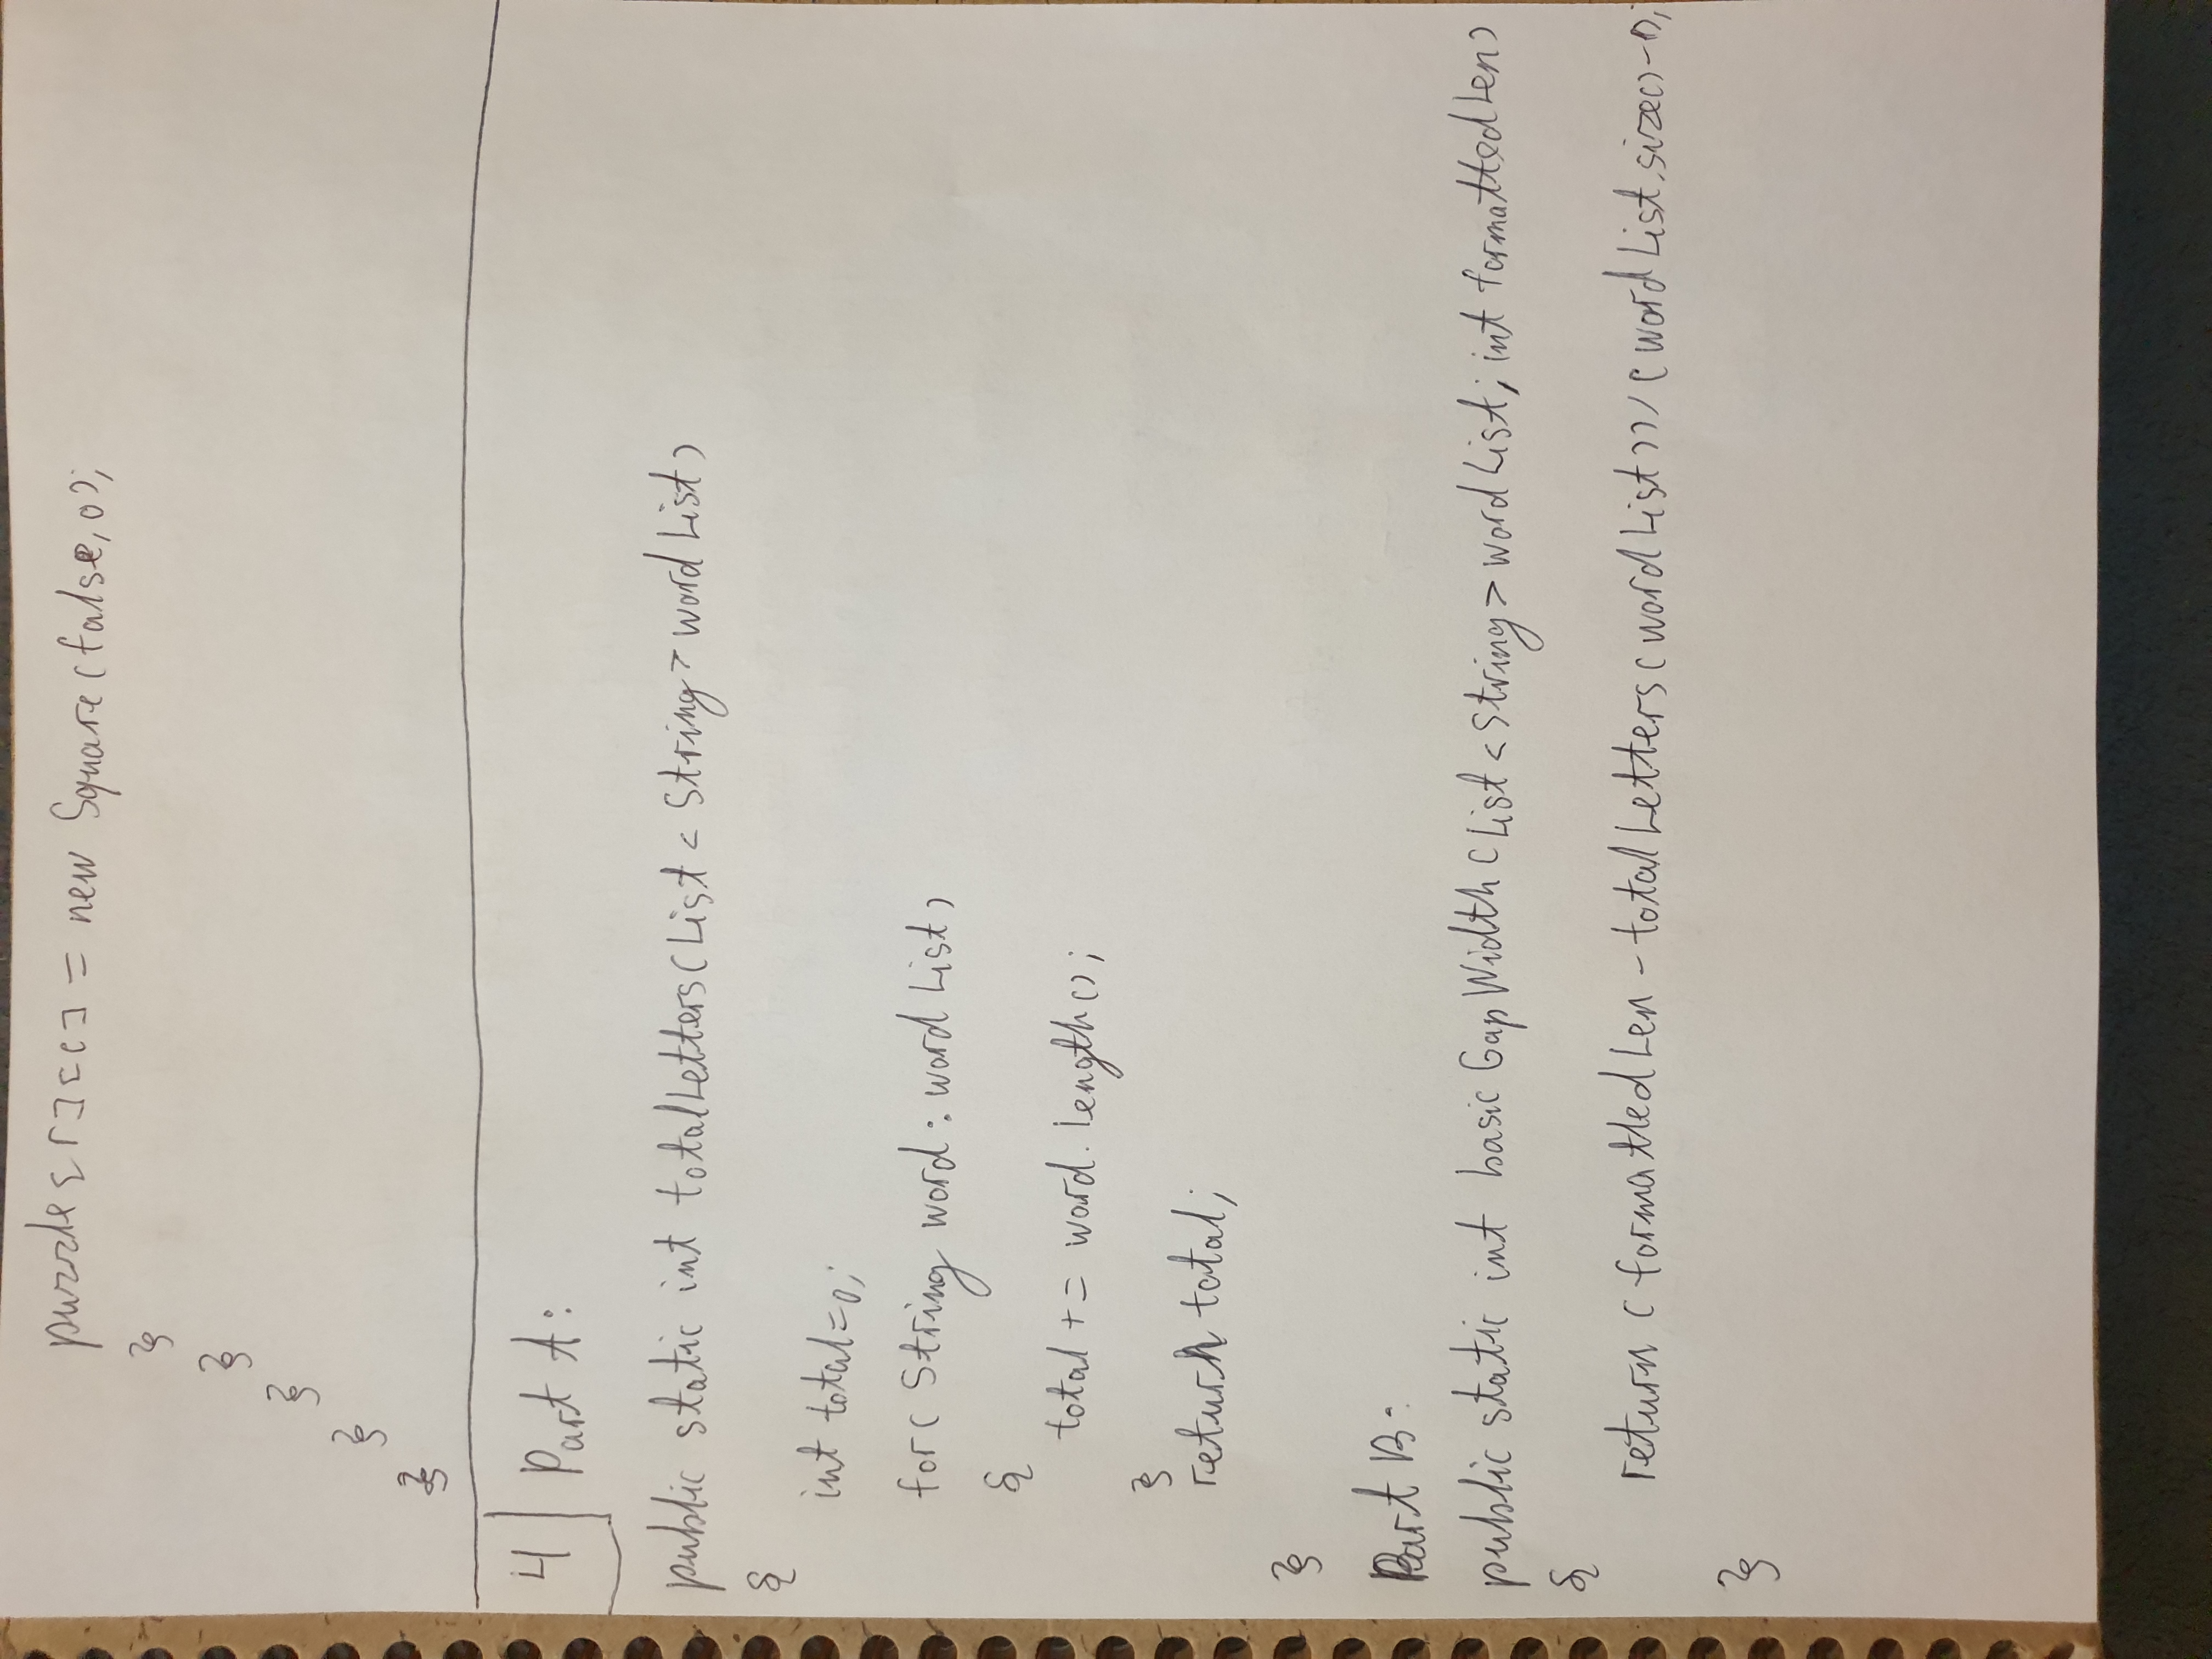 puzzle[r][c] = new Square(false,0);
}
}
}
}
}
4 Part A:
public static int totalLetters(List<String> wordList)
{
int total=0;
for( String word : wordList)
{
total += word.length();
}
return total;
}
Part B:
public static int basicGapWidth(List<String> wordList; int formattedLen)
{
return (formattedLen - totalLetters(wordList)) / (wordList.size()-1);
}